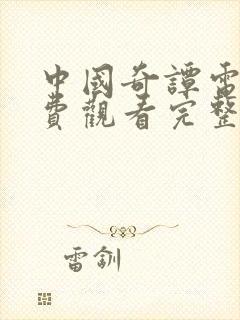 中國奇譚雷
費觀看完整
雷釧